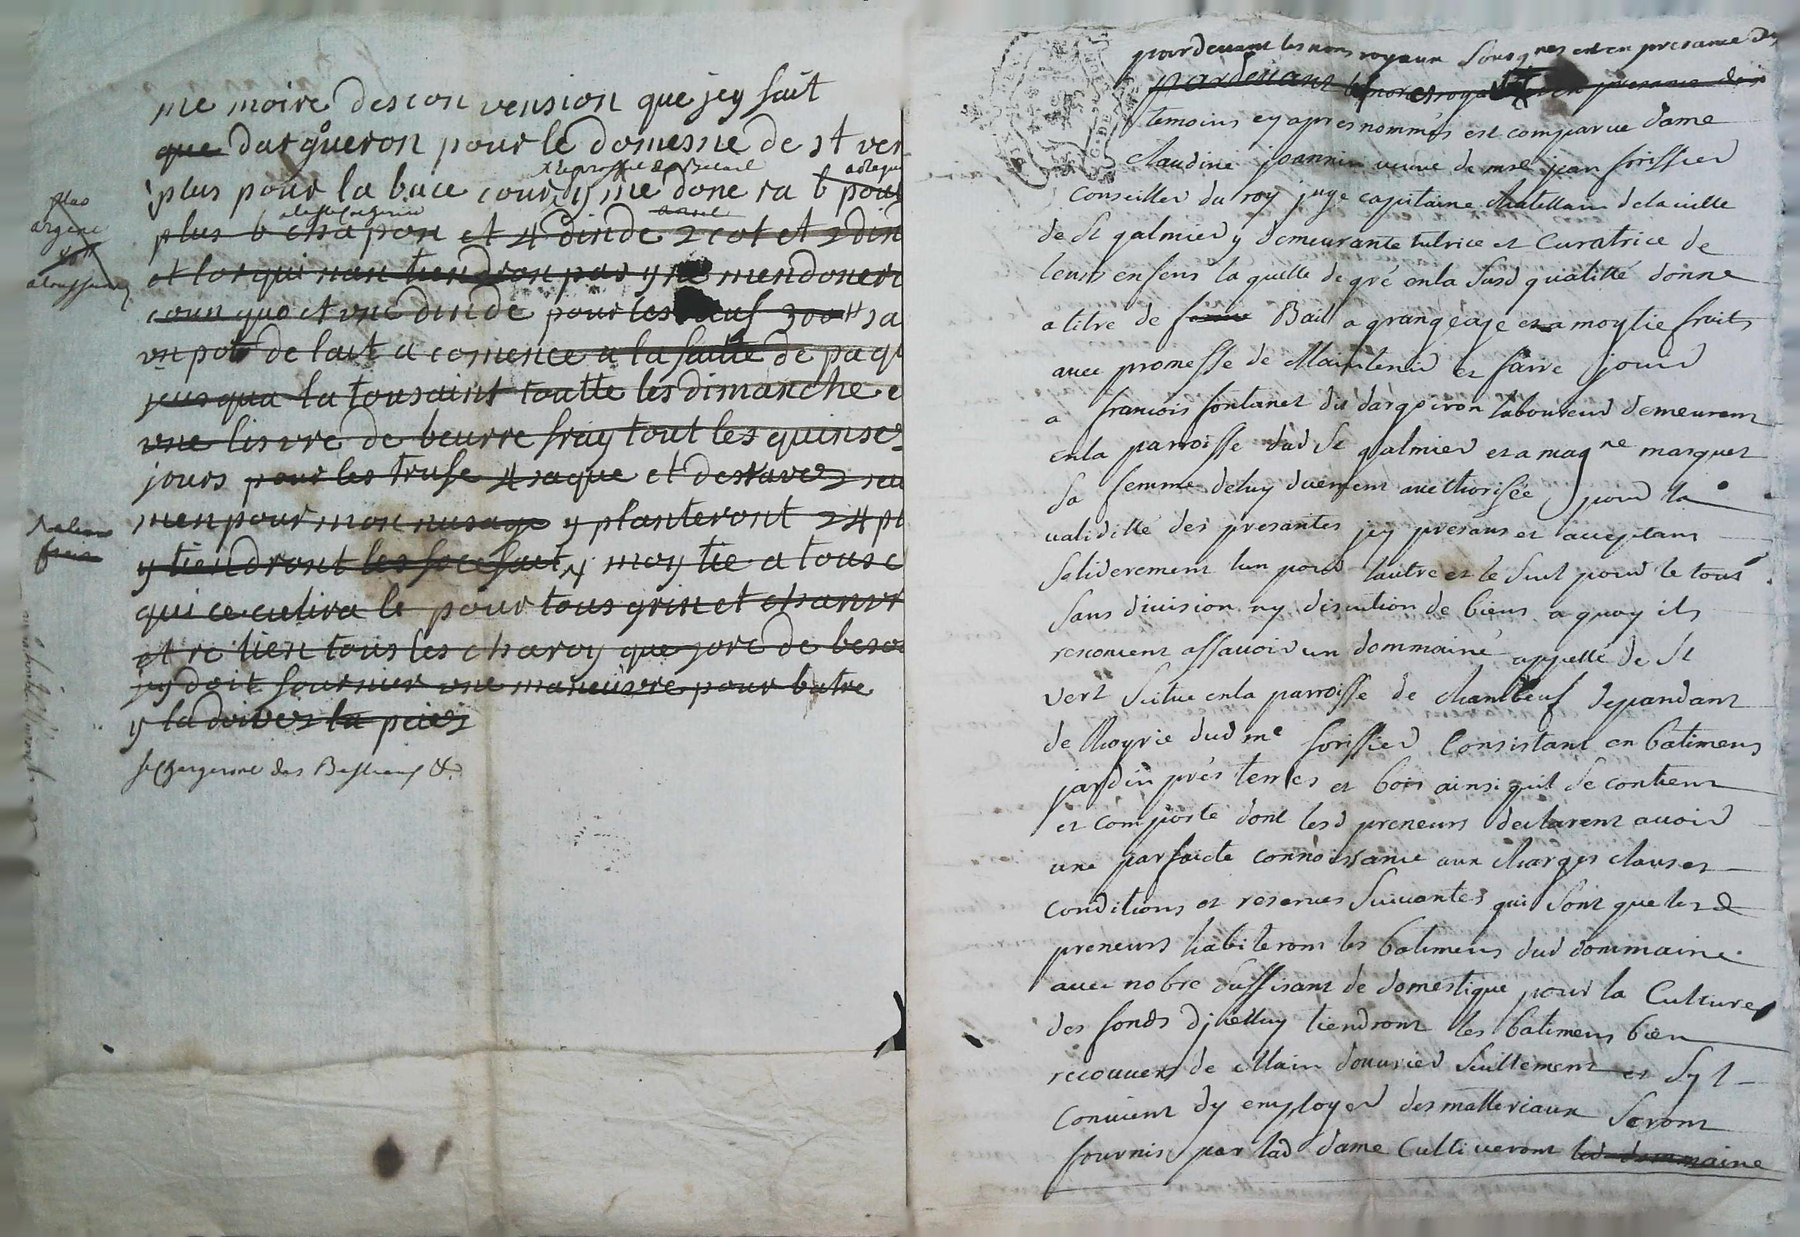 me moire des con vension que jey fait
que dargueron pour le domesne de st ver
plus pour la bace cour y me done ra 6 pou
plus 6 chapon et 4 dinde 2 cot et 2 din
et lorqui nan tiendron pas y me mendoner
coun quo et une dinde pour les euf 300 sa
un pot de lait a comence a la faitte de paq
jeusqua la tousaint toutte les dimanche e
une lisvre de beurre fray tout les quinse
jours pour les trufe 4 saque et des raves seu
men pour mon nusage y planteront 24 pl
y tiendront les foce fait y moytie a tous c
qui ce culira le pour tous grin et chanvr
et re tien tous les charoy que jore de beso
jey doit fournier une maneusvre pour batre
y la doives la peier
se chargeront des Bestiaux &c
plus
argent
pardevant les nores royaux sousignes et en presance des
pardevant les nores royaux et en presance des
temoins cy apres nommés est comparue dame
claudine joannin veuve de mre jean forissier
Conseiller du roy juge capitaine chatellain de la ville
de St galmier y demeurante tutrice et Curatrice de
leurs enfens la quelle de gré en la susd qualitté donne
a titre de ferme Bail a grangeage et a moytie fruits
avec promesse de Maintenir et faire jouir
a francois fontanet dit dargoiron laboureur demeurant
en la parroisse dud St galmier et a magne marquet
sa femme de luy duement aucthorisée pour la
validitté des presantes jcy presans et acceptans
soliderement lun pour lautre et le seul pour le tout
sans division ny discution de biens a quoy ils
renoncent assavoir un dommaine appellé de St
vert scitue en la parroisse de chambeuf depandant
de lhoyrie dud me forissier Consistant en batimens
jardin prés terres et bois ainsi quil se contient
et comporte dont lesd preneurs declarent avoir
une parfaicte connoissance aux charges clauses
conditions et reserves suivantes qui sont que lesd
preneurs habiteront les batimens dud dommaine
avec nobre suffisant de domestique pour la Culture
des fonds dicelluy tiendront les batimens bien
recouvert de Main douvrier seullement et syl
convient dy employer des matteriaux seront
fournis par lad dame Cultiveront led dommaine